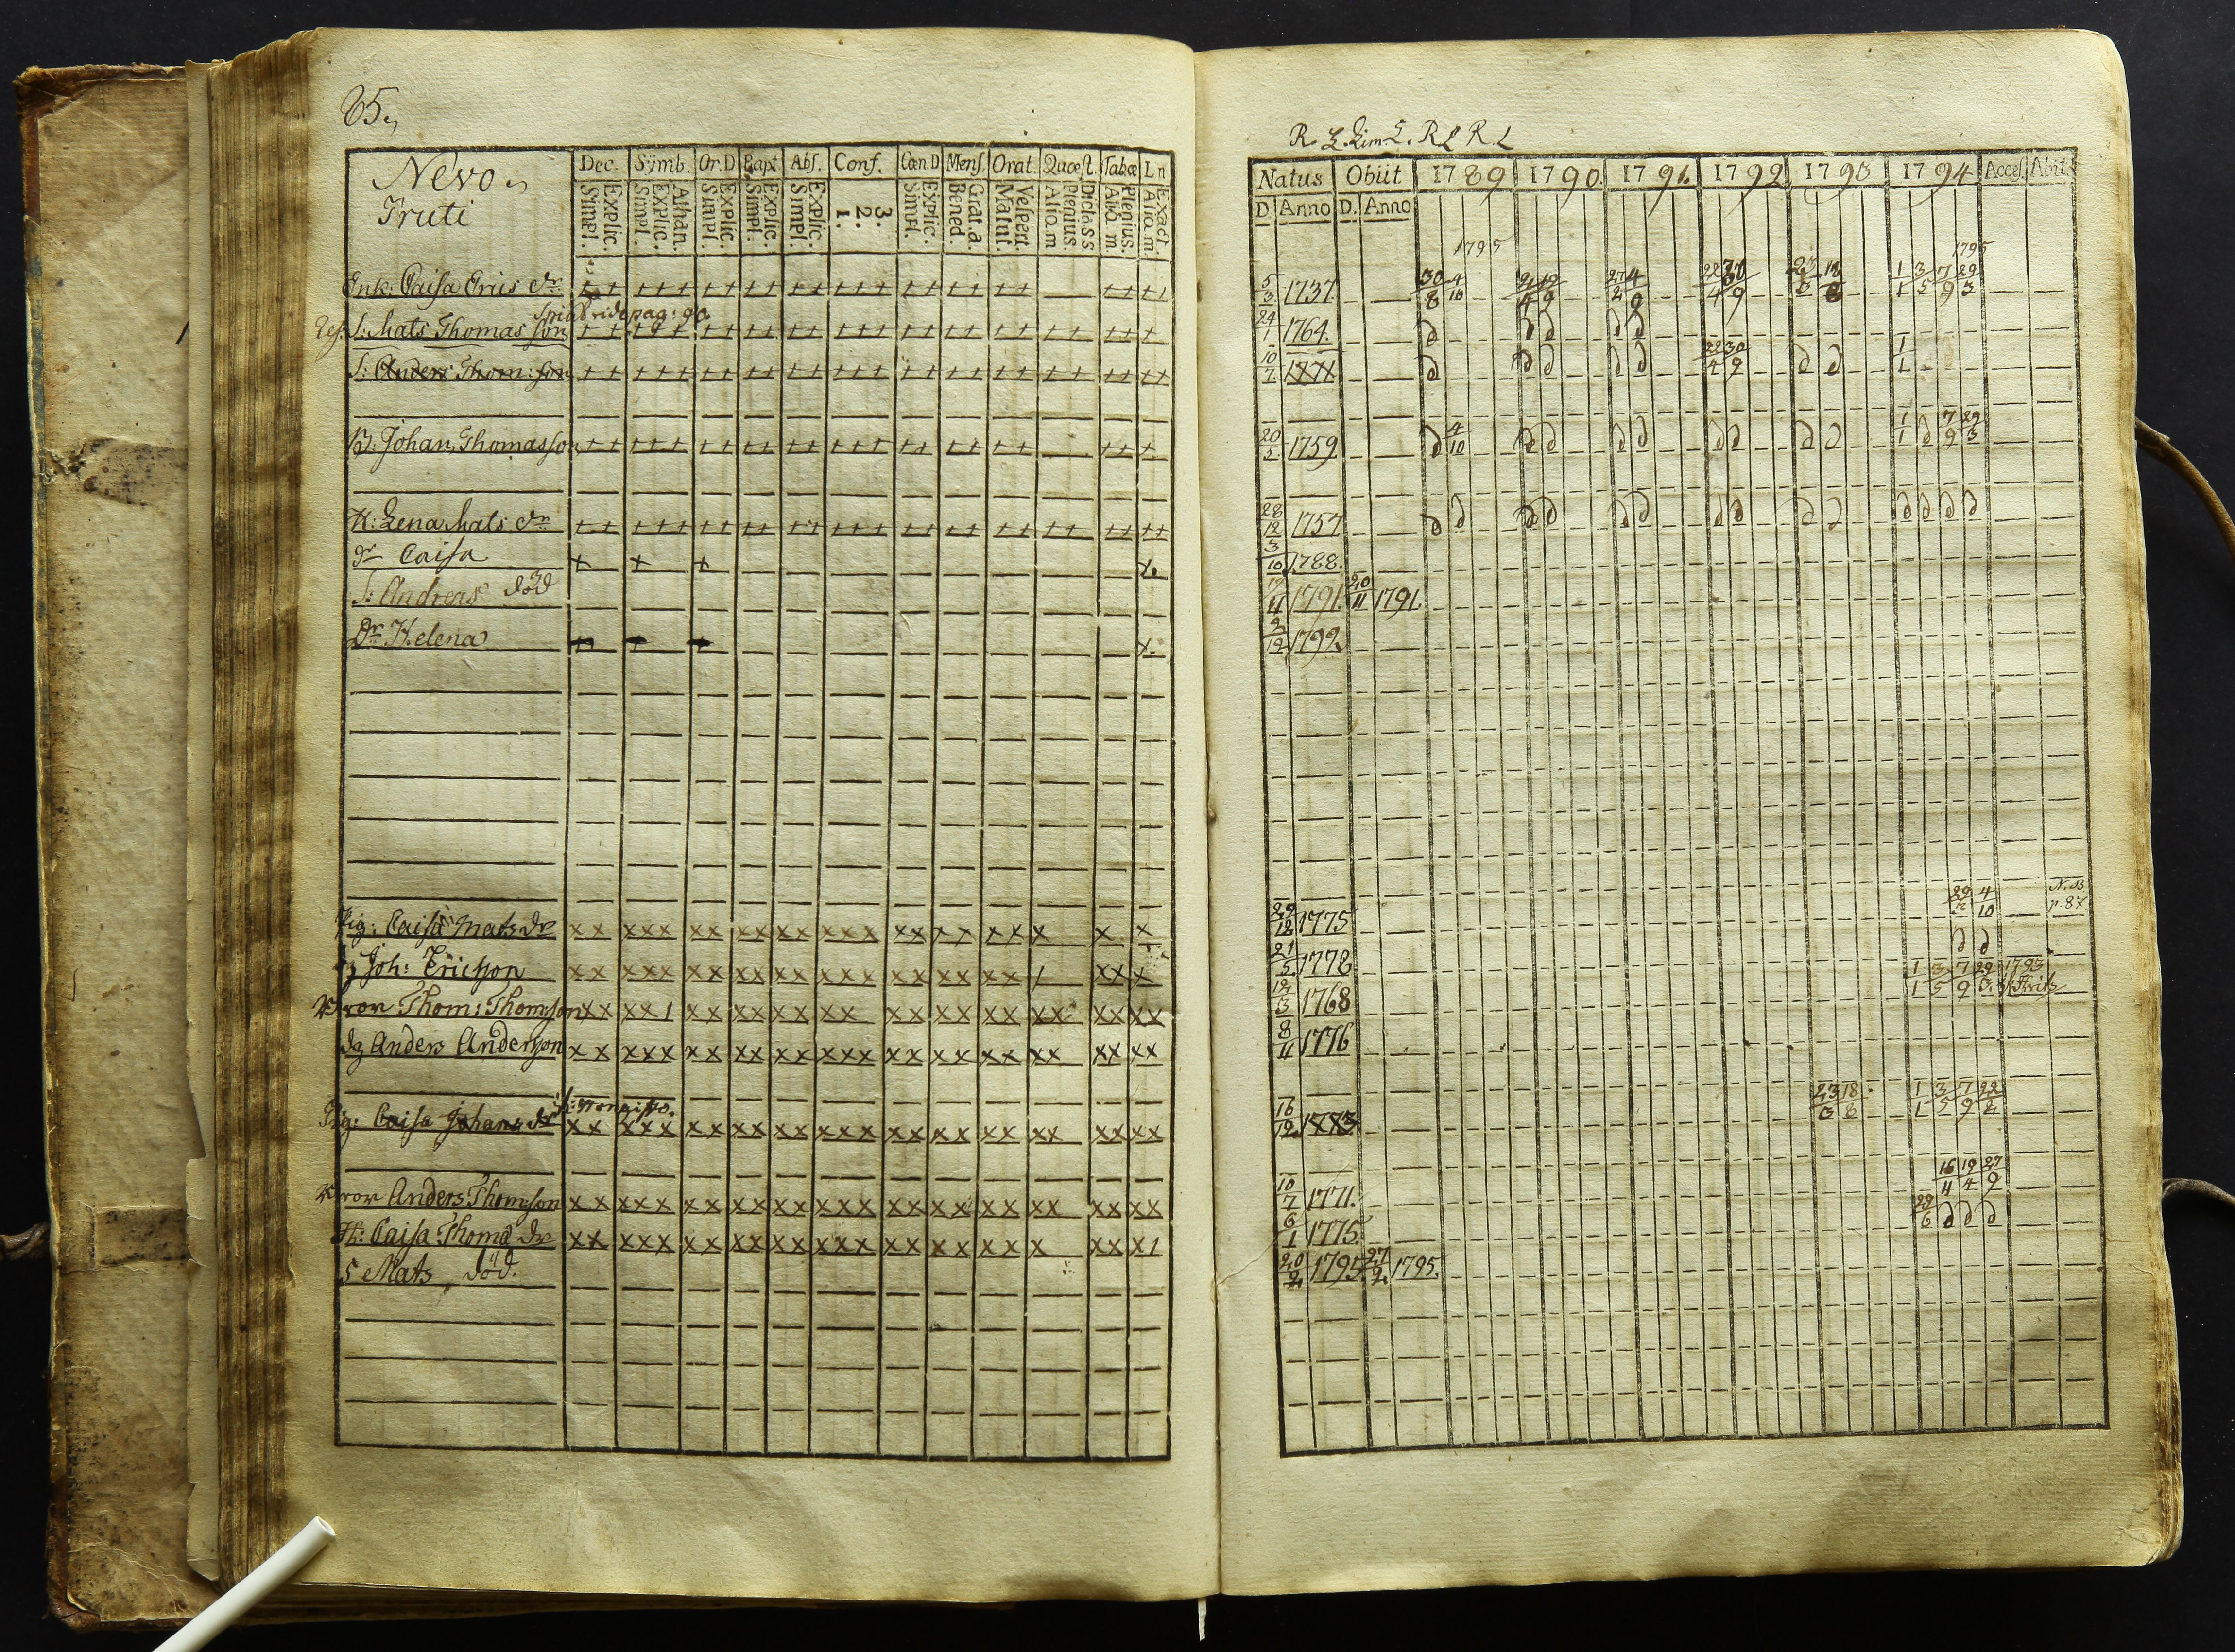 85,
Nevo
Fruti
Dec. Symb. Or.D Bapt Abs. Conf. Cœn D Mens. Orat. Quæst. Tabæ L n
Explic. Simpl. Athan. Explic. Simpl. Explic. Simpl. Explic. Simpl. Explic. Simpl. 3. 2. 1. Explic. Simpl. Grat. a. Bened. Vespert. Matut. Dicta S S Plenius. Aliq. m Plenius. Aliq. m. Exact. Aliq. m.
Enk: Caisa Eriis dr
vide pag: 90.
S: Mats Thomasson
S: Anders Thom:son
B: Johan Thomasson
H: Lena Mats dr
dr Caisa
S: Andreas död
Dr Helena
Pig: Caisa Mats dr
Joh: Ericsson
Thom: Thomson
dg Anders Andersson
Pig: Caisa Johans dr
Anders Thomsson
H: Caisa Thoms dr
S Mats död.
R. L. Lim L. R L R. L
Natus Obiit 1789 1790 1791. 1792 1793 1794 Access. Abit.
D. Anno D. Anno
1795 1795
5/3 1737. 30/8 4/10 1/1 3/5 7/9 29/3
24/1 1764.
10/7 1771 22/4 30/9 1/1
20/5 1759 4/10 1/1 7/9 29/3
28/12 1757
3/10 1788.
1791. 20/11 1791.
2/12 1792
29/12 1775 29/3 4/10 p. 87
21/5 1778
1768 1/1 3/5 7/9 29/3 1793
8/11 1776
16/12 1773 23/3 18/8 1/1 3/5 7/9
10/7 1771. 16/11 19/4 27/9
6/1 1775. 29/6
20/2 1795. 27/2 1795.